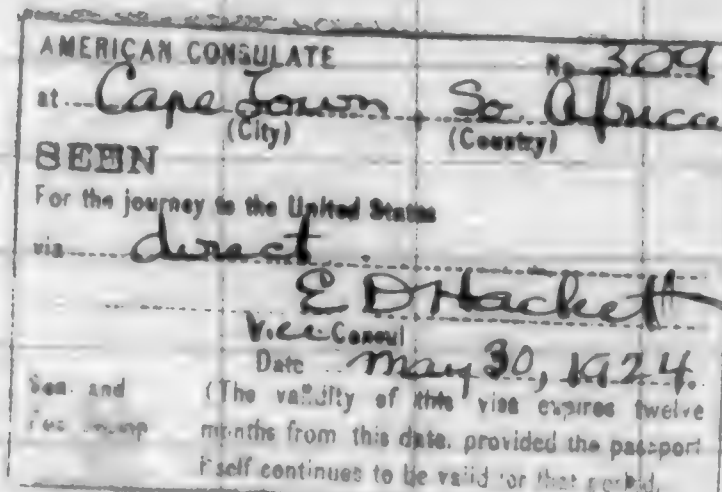 AMERICAN CONSULATE No. 309
at Cape Town So Africa
(City) (Country)
SEEN
For the journey to the United States
via direct
E D Hackett
Vice Consul
Date May 30, 1924.
Seal and (The validity of this visa expires twelve
Fee Stamp months from this date, provided the passport
itself continues to be valid for that period.